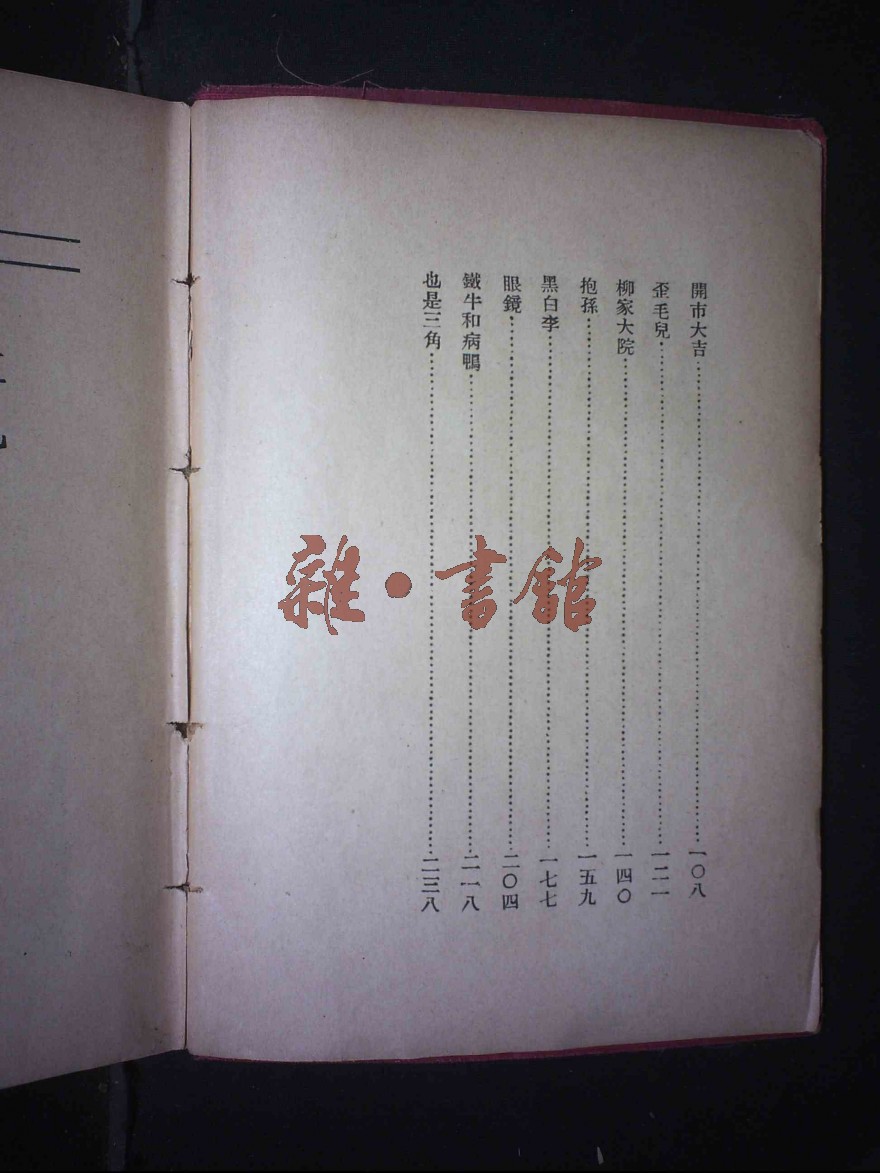 開市大吉……一〇八
歪毛兒……一二一
柳家大院……一四〇
抱孫……一五九
黑白李……一七七
眼鏡……二〇四
鐵牛和病鴨……二一八
也是三角……二三八
雜·書館